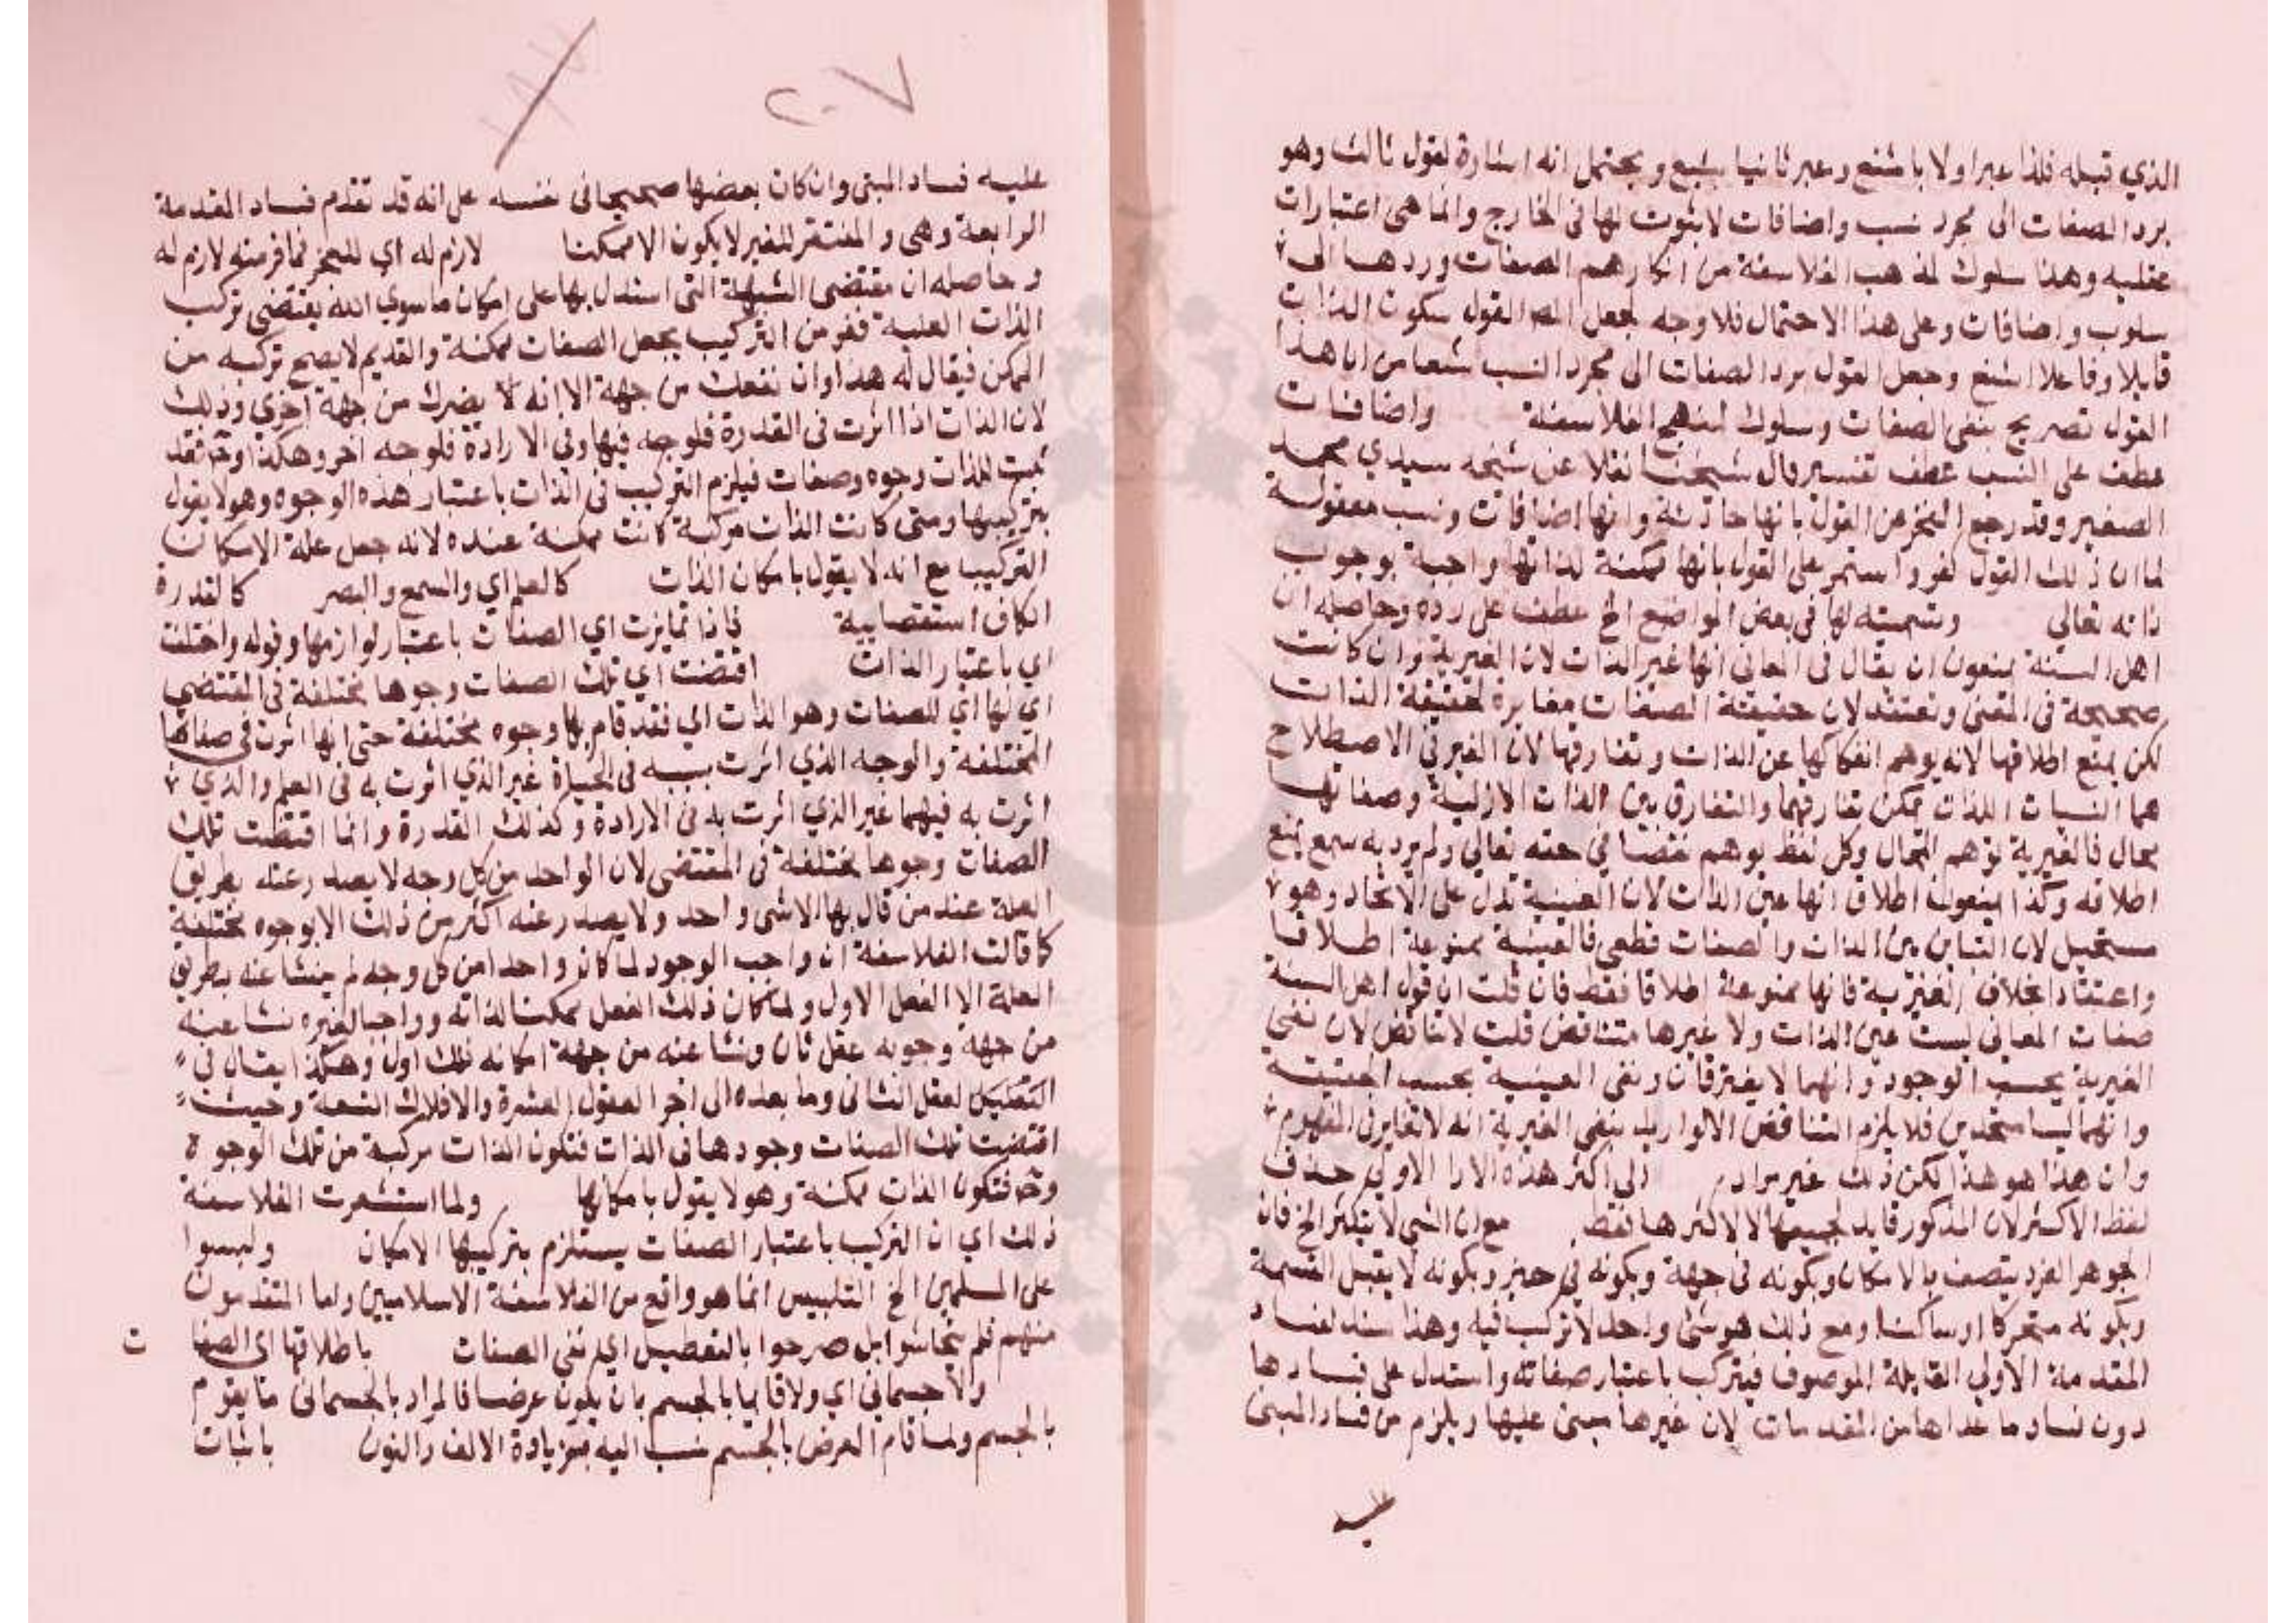 الذي قبله فلذا عبر اولا باشنع وعبر ثانيا بشيع ويحتمل انه اشارة لقول ثالث وهو
برد الصفات الى مجرد نسب واضافات لا ثبوت لها في الخارج وانما هي اعتبارات
عقلية وهذا سلوك لمذهب الفلاسفة من انكارهم الصفات وردها الى
سلوب واضافات وعلى هذا الاحتمال فلا وجه لجعل المص القول بكون الذات
قابلا وفاعلا اشنع وجعل القول برد الصفات الى مجرد النسب شنعا من ان هذا
القول تصريح بنفي الصفات وسلوك لمنهج الفلاسفة واضافات
عطف على النسب عطف تفسير قال شيخنا نقلا عن شيخه سيدي محمد
الصغير وقد رجع الفخر عن القول بانها حادثة وانها اضافات ونسب معقولة
لما ان ذلك القول كفر واستمر على القول بانها ممكنة لذاتها واجبة بوجوب
ذاته تعالى وتسميته لها في بعض المواضع الخ عطف على رده وحاصله ان
اهل السنة يمنعون ان يقال في المعاني انها غير الذات لان الغيرية وان كانت
صحيحة في المعنى ونعتقد لان حقيقة الصفات مغايرة لحقيقة الذات
لكن يمنع اطلاقها لانه يوهم انفكاكها عن الذات وتفارقها لان الغير في الاصطلاح
هما الشيات اللذان يمكن تفارقهما والتفارق بين الذات الازلية وصفاتها
محال فالغيرية توهم المحال وكل لفظ يوهم نقضا في حقه تعالى ولم يرد به سمع يمنع
اطلاقه وكذا يمنعون اطلاق انها عين الذات لان العينية تدل على الاتحاد وهو
مستحيل لان التباين بين الذات والصفات قطعي فالعينية ممنوعة اطلاقا
واعتقادا بخلاف الغيرية فانها ممنوعة اطلاقا فقط فان قلت ان قول اهل السنة
صفات المعاني ليست عين الذات ولا غيرها متناقض قلت لا تناقض لان نفي
الغيرية بحسب الوجود وانهما لا يفترقان ونفي العينية بحسب الحقيقة
وانهما ليسا متحدين فلا يلزم التناقض الا لو اريد بنفي الغيرية انه لا تغاير في المفهوم
وان هذا هو هذا لكن ذلك غير مراد الى اكثر هذه الارا الاولى حذف
لفظ الاكثر لان المذكور قايد لجميعها لا لاكثرها فقط مع ان الشي لا يتكثر الخ فان
الجوهر الفرد يتصف بالامكان وبكونه في جهة وبكونه في حيز وبكونه لا يقبل القسمة
وبكونه متحركا او ساكنا ومع ذلك هو شئ واحد لا تركب فيه وهذا سند لفساد
المقدمة الاولى القايلة الموصوف فيتركب باعتبار صفاته واستدل على فسادها
دون فساد ما عداها من المقدمات لان غيرها مبنى عليها ويلزم من فساد المبنى
عليه فساد المبنى وان كان بعضها صحيحا في نفسه على انه قد تقدم فساد المقدمة
الرابعة وهي والمفتقر للغير لا يكون الا ممكنا لازم له اي للفخر فما فر منه لازم له
وحاصله ان مقتضى الشبهة التي استدل بها على امكان ما سوى الله يقتضي تركب
الذات العلية ففر من التركيب بجعل الصفات ممكنة والقديم لا يصح تركبه من
الممكن فيقال له هذا وان نفعك من جهة الا انه لا يضرك من جهة اخرى وذلك
لان الذات اذا اثرت في القدرة فلوجه فيها وفي الارادة فلوجه اخر وهكذا وح فقد
ثبت للذات وجوه وصفات فيلزم التركيب في الذات باعتبار هذه الوجوه وهو لا يقول
بتركيبها ومتى كانت الذات مركبة كانت ممكنة عنده لانه جعل علة الامكان
التركيب مع انه لا يقول بامكان الذات كالعلم اي والسمع والبصر كالقدرة
الكاف استقصايية فاذا تمايزت اي الصفات باعتبار لوازمها وقوله واختلفت
اي باعتبار الذات اقتضت اي تلك الصفات وجوها مختلفة في المقتضي
اي لها اي للصفات وهو الذات اي فقد قام بها وجوه مختلفة حتى انها اثرت في صفاتها
المختلفة والوجه الذي اثرت بسببه في الحياة غير الذي اثرت به في العلم والذي
اثرت به فيهما غير الذي اثرت به في الارادة وكذلك القدرة وانما اقتضت تلك
الصفات وجوها مختلفة في المقتضى لان الواحد من كل وجه لا يصدر عنه بطريق
العلة عند من قال بها الا شي واحد ولا يصدر عنه اكثر من ذلك الا بوجوه مختلفة
كما قالت الفلاسفة ان واجب الوجود لما كان واحدا من كل وجه لم ينشا عنه بطريق
العلة الا الفعل الاول ولما كان ذلك الفعل ممكنا لذاته وواجبا لغيره نشا عنه
من جهة وجوبه عقل ثان ونشا عنه من جهة امكانه فلك اول وهكذا يقال في
التعليل لعقل الثاني وما بعده الى اخر العقول العشرة والافلاك التسعة وحيث
اقتضت تلك الصفات وجودها في الذات فتكون الذات مركبة من تلك الوجوه
وح فتكون الذات ممكنة وهو لا يقول بامكانها ولما استشعرت الفلاسفة
ذلك اي ان التركيب باعتبار الصفات يستلزم بتركيبها الامكان ولبسوا
على المسلمين الخ التلبيس انما هو واقع من الفلاسفة الاسلاميين واما المتقدمون
منهم فلم يتحاشوا بل صرحوا بالتعطيل اي نفي الصفات باطلاقها اي الصفا ت
والاجسماني اي ولا قايما بالجسم بان يكون عرضا فالمراد بالجسماني ما يقوم
بالجسم ولما قام العرض بالجسم نسب اليه بزيادة الالف والنون باثبات